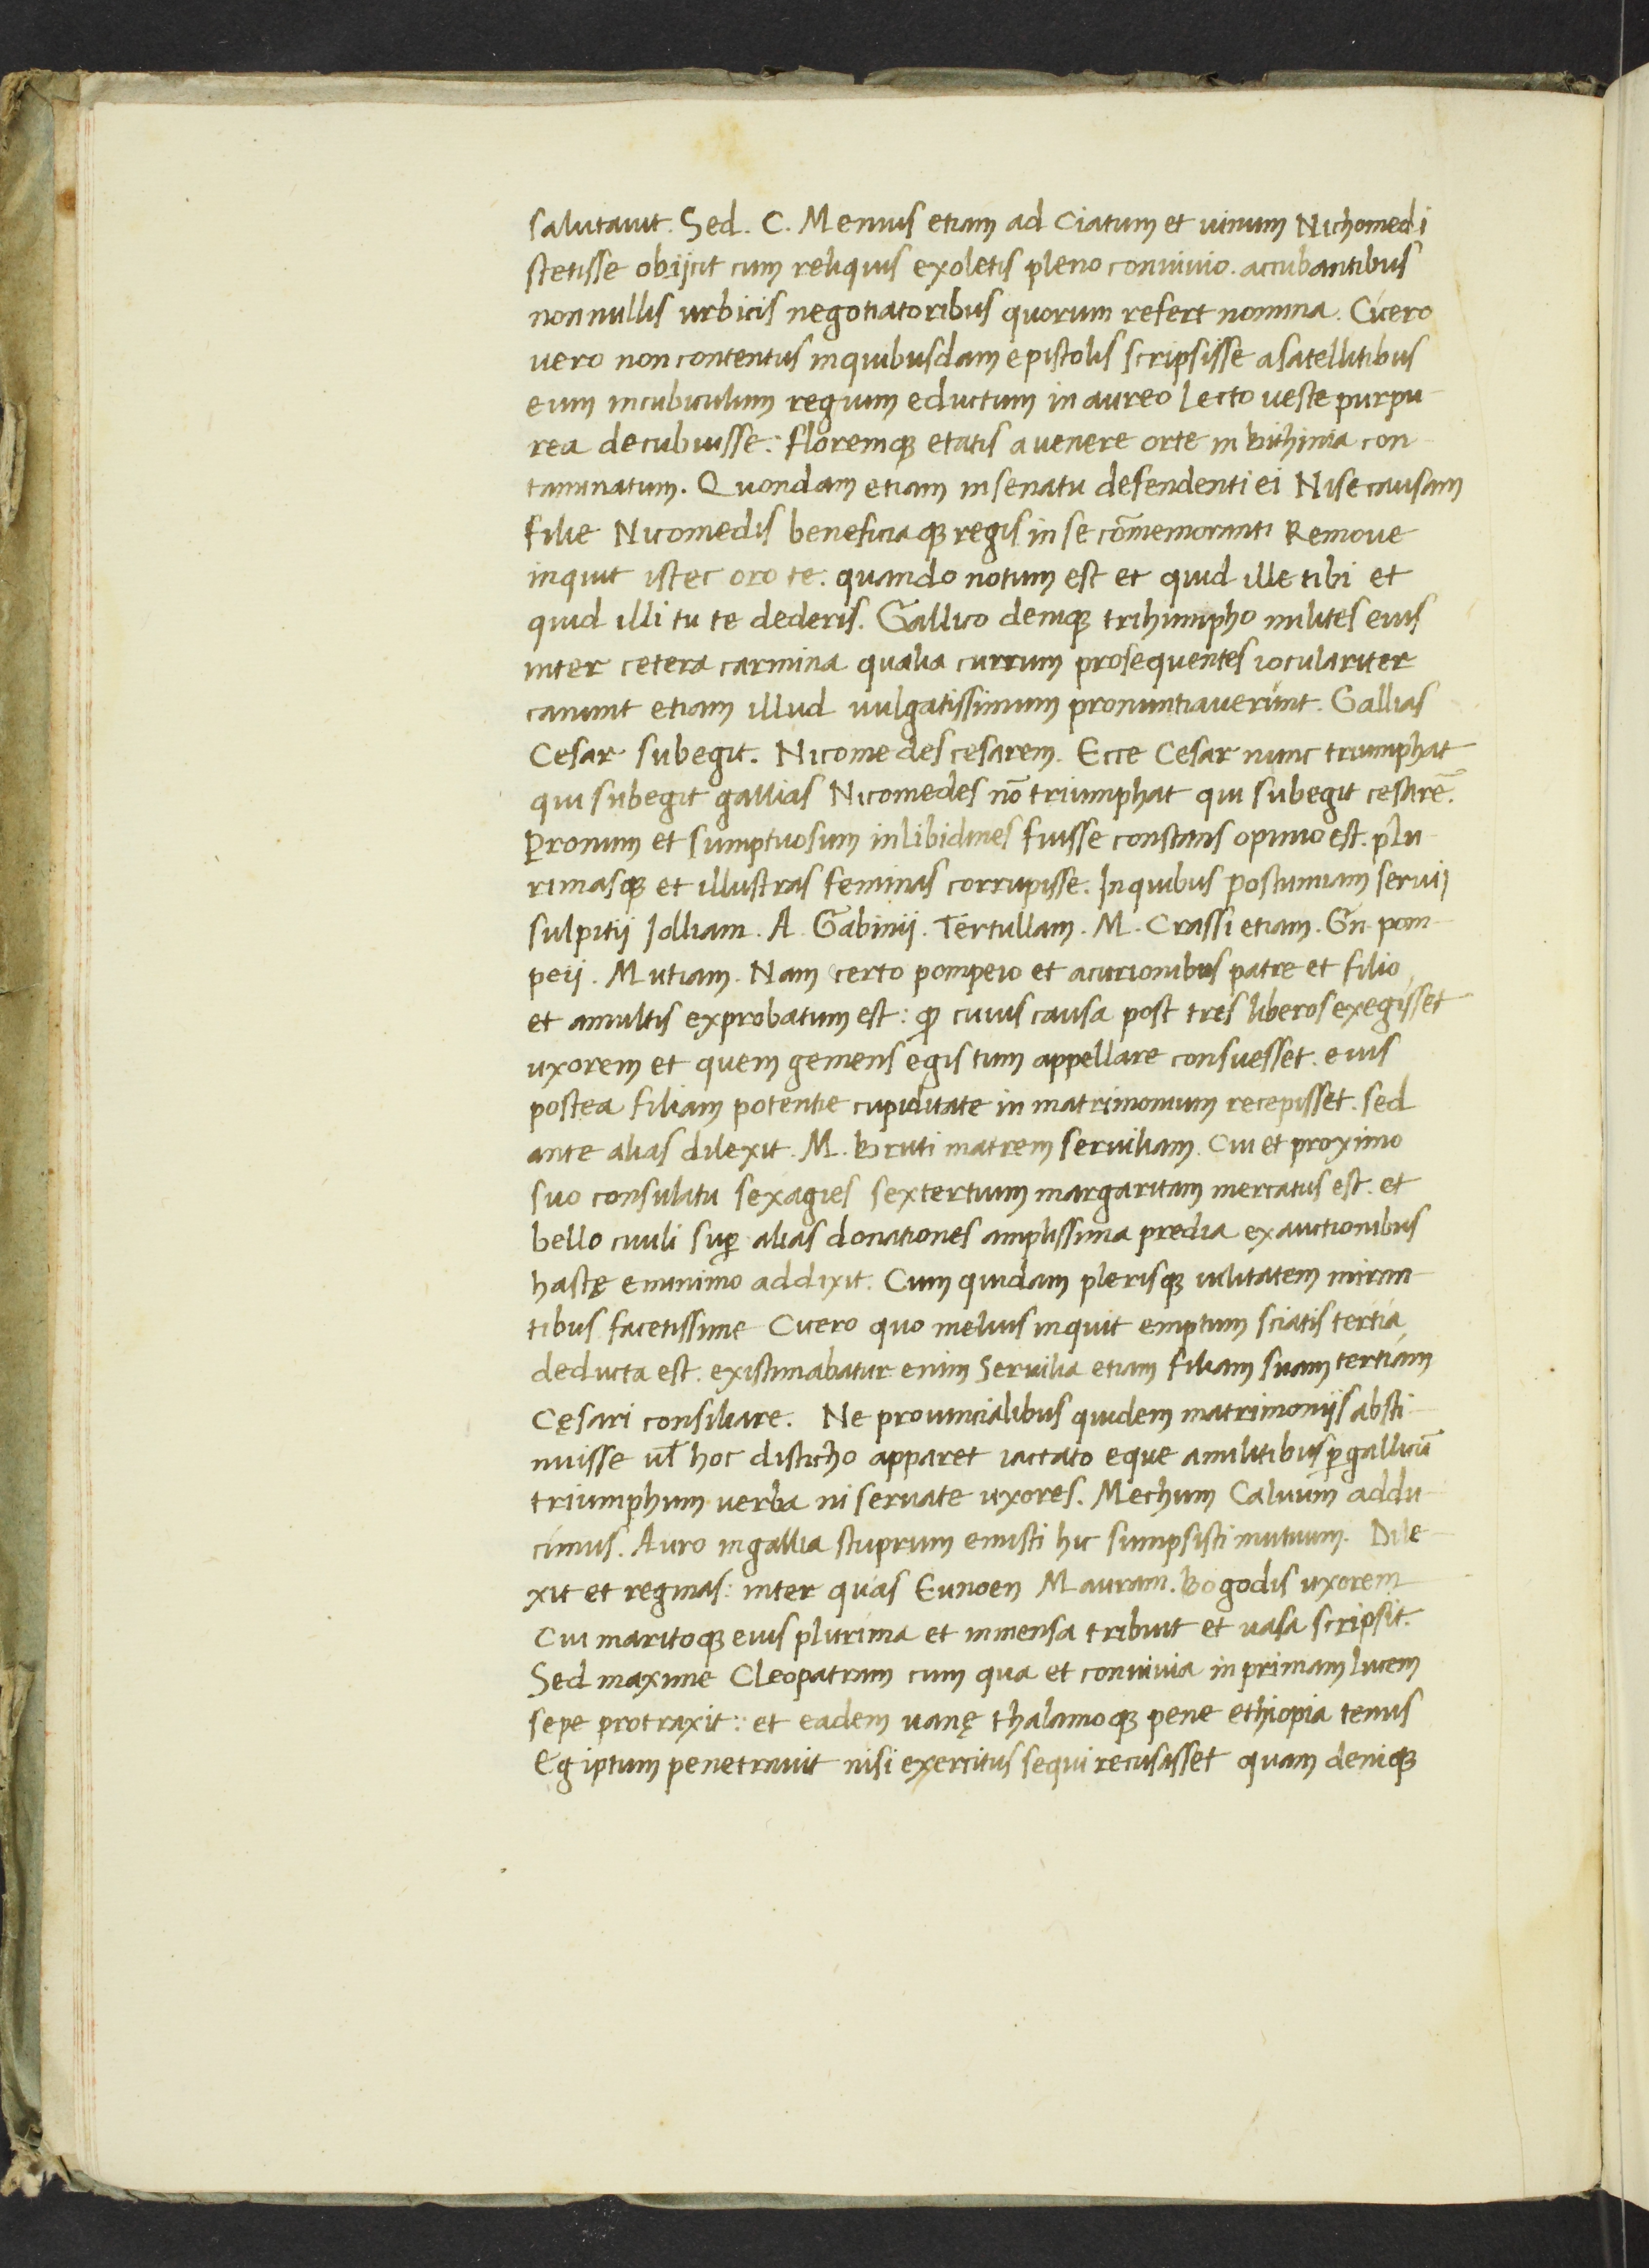 salutavit. Sed. C. Memius etiam ad Ciatum et vinum Nichomedi
stetisse obijcit cum reliquis exoletis pleno convivio. accubantibus
nonnullis urbicis negotiatoribus quorum refert nomina. Cicero
vero non contentus in quibusdam epistolis scripsisse a satellitibus
eum in cubiculum regium eductum in aureo lecto veste purpu-
rea decubuisse: floremqꝫ etatis a venere orte in bithinia con-
taminatum. Quondam etiam in senatu defendenti ei Nise causam
filie Nicomedis beneficiaqꝫ regis in se cōmemoranti Remove
inquit istec oro te. quando notum est et quid ille tibi et
quid illi tu te dederis. Gallico deniqꝫ trihumpho milites eius
inter cetera carmina qualia currum prosequentes ioculariter
canunt etiam illud vulgatissimum pronuntiaverunt. Gallias
Cesar subegit. Nicomedes cesarem. Ecce Cesar nunc triumphat
qui subegit gallias Nicomedes nō triumphat qui subegit cesarē.
Pronum et sumptuosum in libidines fuisse constans opinio est. plu-
rimasqꝫ et illustras feminas corrupisse. In quibus postumiam servij
sulpitij Jolliam. A. Gabinij. Tertullam. M. Crassi etiam. Gn. pom-
peij. Mutiam. Nam certo pompeio et a curionibus patre et filio
et a multis exprobatum est: ꝙ cuius causa post tres liberos exegisset
uxorem et quem gemens egistum appellare consuesset. eius
postea filiam potentie cupiditate in matrimonium recepisset. sed
ante alias dilexit. M. Bruti matrem serviliam. Cui et proximo
suo consulatu sexagies sextertium margaritam mercatus est. et
bello civili suꝑ alias donationes amplissima predia ex auctionibus
hastę e minimo addixit. Cum quidam plerisqꝫ vilitatem miran-
tibus facetissime Cicero quo melius inquit emptum sciatis tertia
deducta est. existimabatur enim Servilia etiam filiam suam tertiam
Cęsari consiliare. Ne provincialibus quidem matrimonijs absti-
nuisse vł hoc disticho apparet iactato eque a militibus ꝑ gallicū
triumphum verba ni servate uxores. Mechum Calvum addu-
cimus. Auro in gallia stuprum emisti hic sumpsisti mutuum. Dile-
xit et reginas: inter quas Eunoen Mauram. Bogodis uxorem
Cui maritoqꝫ eius plurima et inmensa tribuit et vasa scripsit.
Sed maxime Cleopatram cum qua et convivia in primam lucem
sepe protraxit: et eadem nanę thalamoqꝫ pene ethiopia tenus
Egiptum penetravit nisi exercitus sequi recusasset quam deniqꝫ